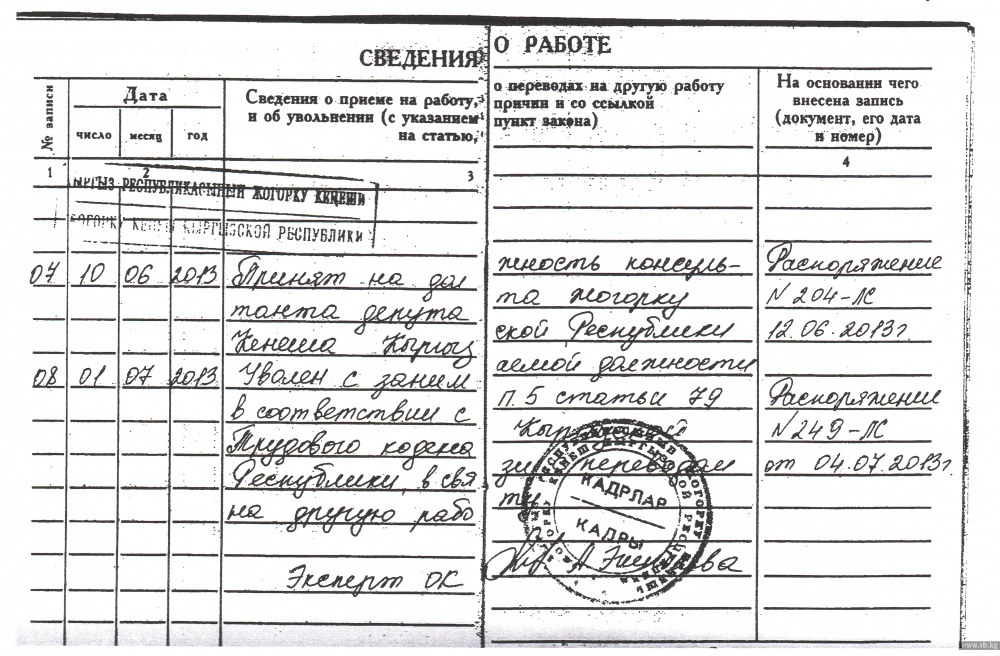 СВЕДЕНИЯ О РАБОТЕ
№ записи
Дата
Сведения о приеме на работу, о переводах на другую работу
и об увольнении (с указанием причин и со ссылкой
на статью, пункт закона)
На основании чего
внесена запись
(документ, его дата
и номер)
число месяц год
1 2 3 4
КЫРГЫЗ РЕСПУБЛИКАСЫНЫН ЖОГОРКУ КЕҢЕШИ
ЖОГОРКУ КЕНЕШ КЫРГЫЗСКОЙ РЕСПУБЛИКИ
07 10 06 2013 Принят на должность консуль- Распоряжение
танта депутата Жогорку N 204-ЛС
Кенеша Кыргызской Республики 12.06.2013г.
08 01 07 2013 Уволен с занимаемой должности
в соответствии с п. 5 статьи 79 Распоряжение
Трудового кодекса N 249-ЛС
Республики, в связи с переводом от 04.07.2013г.
на другую работу
Эксперт ОК
КАДРЛАР
КАДРЫ
www.vb.kg